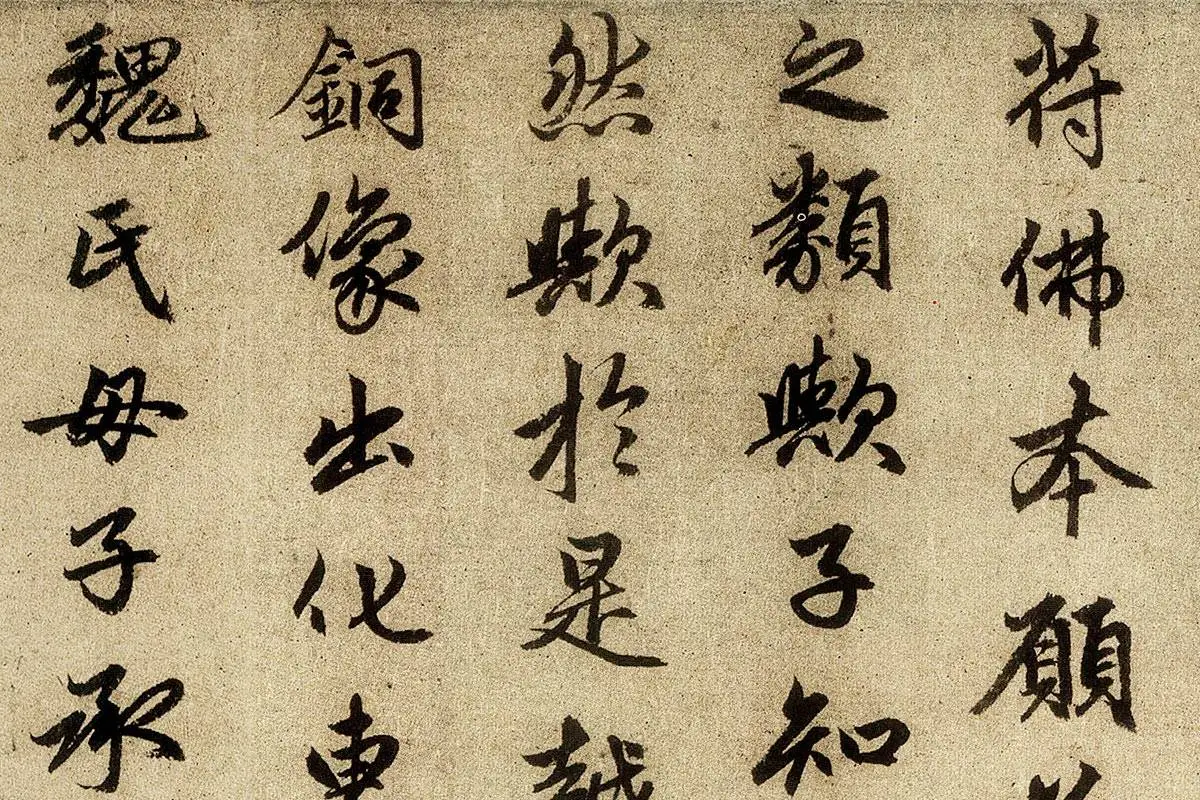 符佛本願
之類歟子知
然歟於是越
銅像出化
魏氏母子承